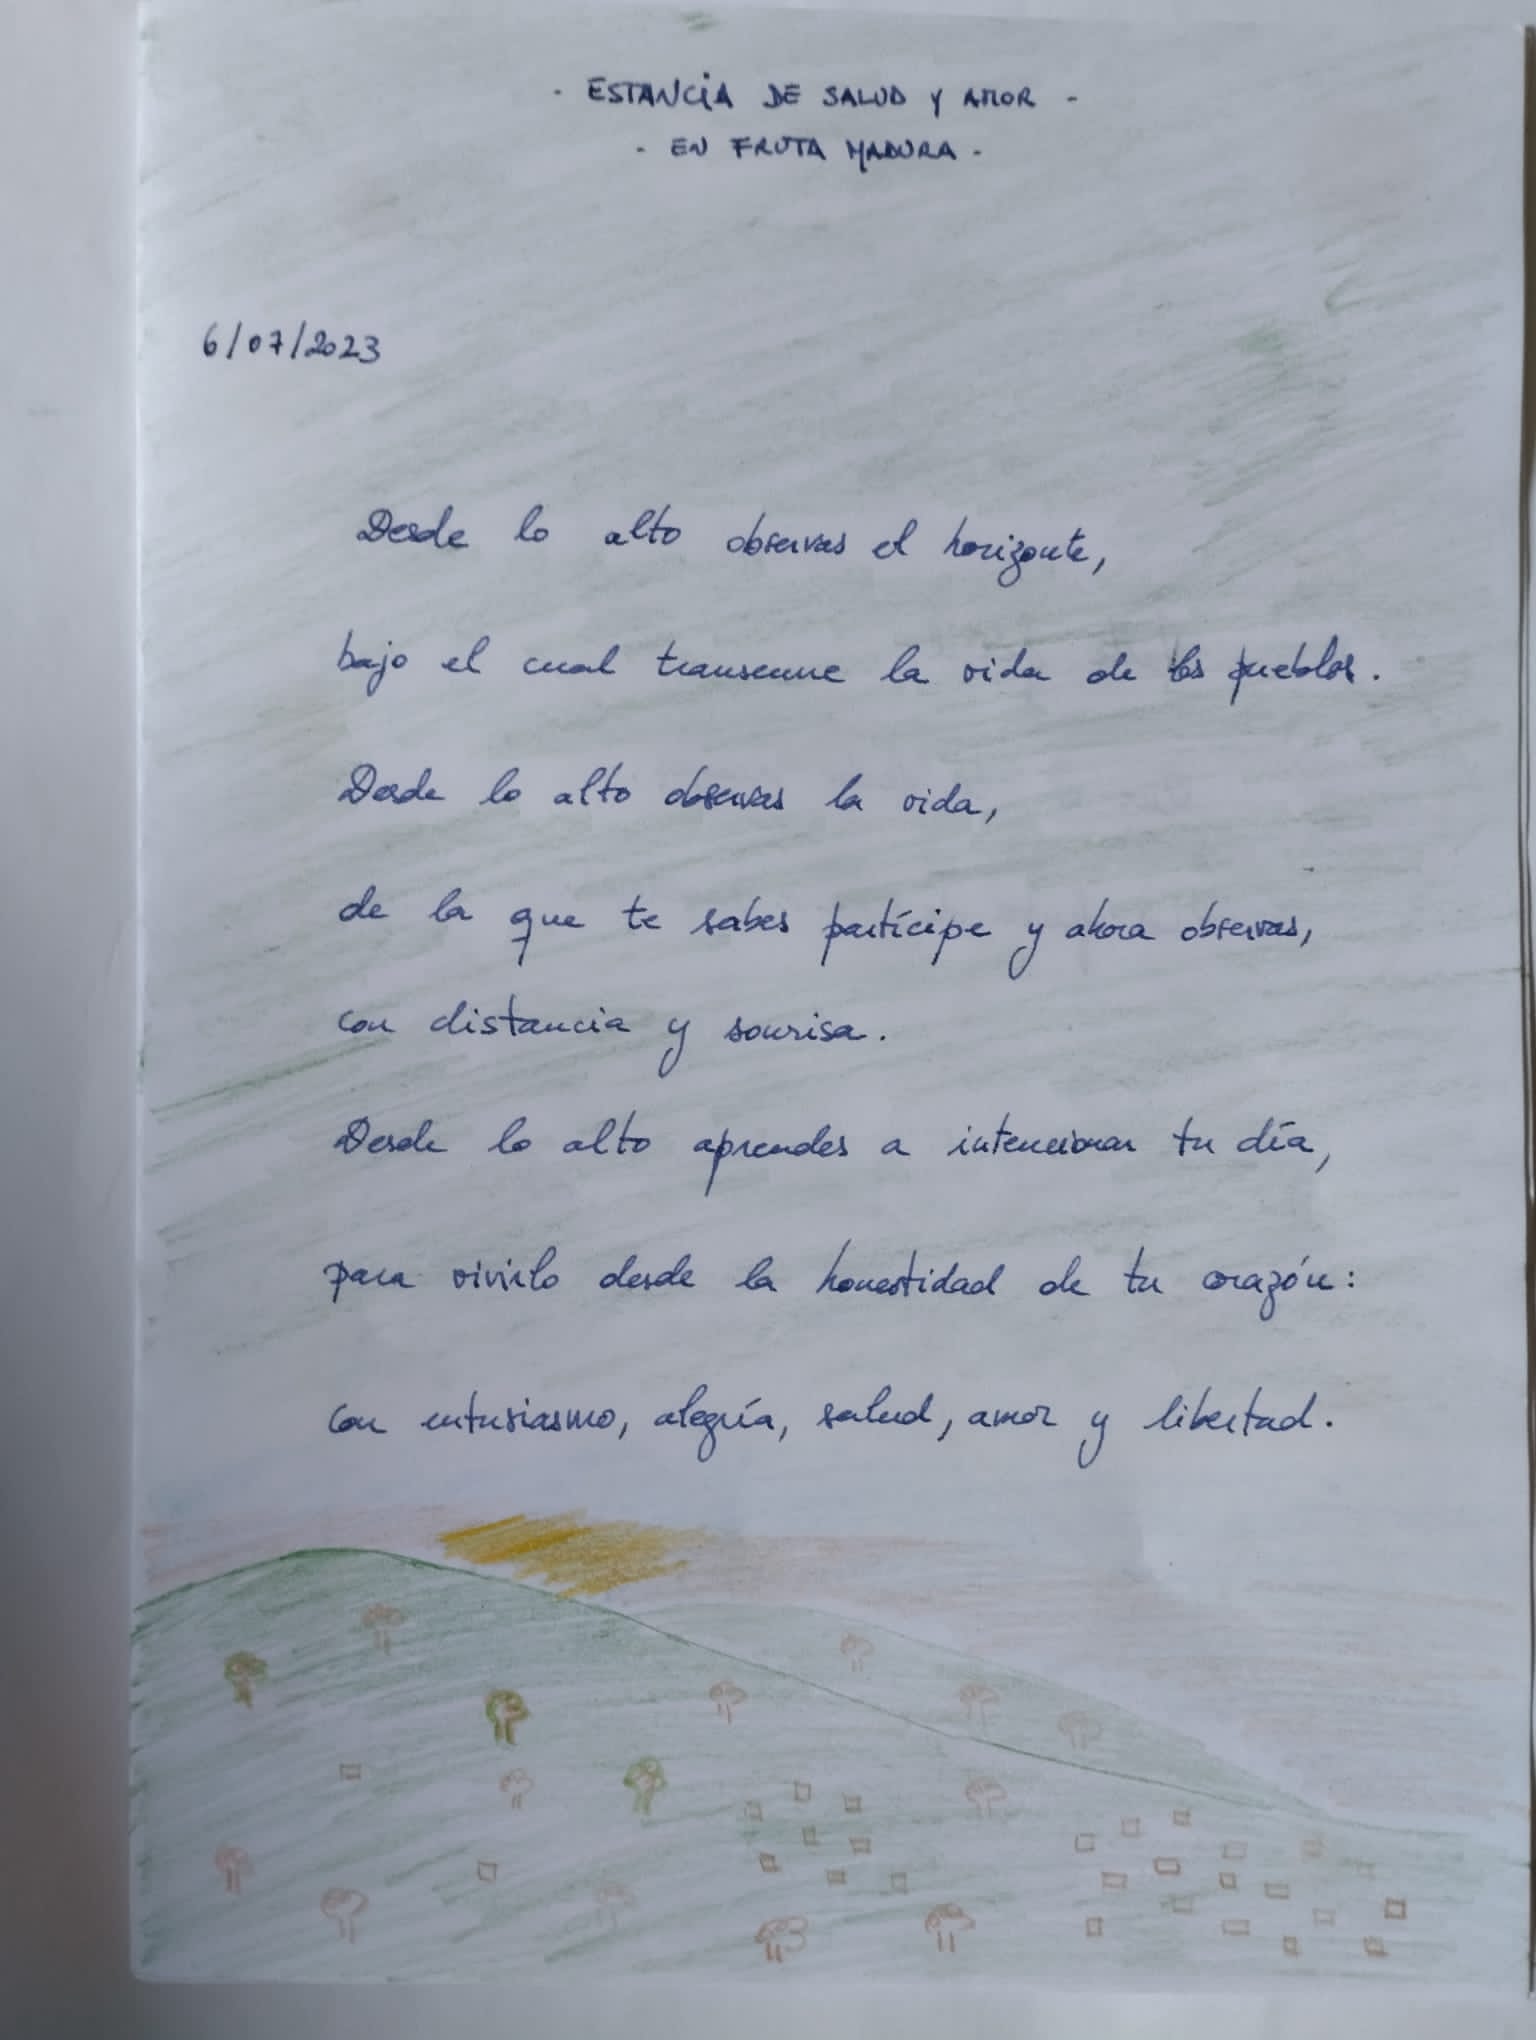 - ESTANCIA DE SALUD Y AMOR -
- EN FRUTA MADURA -
6/07/2023
Desde lo alto observas el horizonte,
bajo el cual transcurre la vida de los pueblos.
Desde lo alto observas la vida,
de la que te sabes partícipe y ahora observas,
con distancia y sonrisa.
Desde lo alto aprendes a intencionar tu día,
para vivirlo desde la honestidad de tu corazón:
con entusiasmo, alegría, salud, amor y libertad.